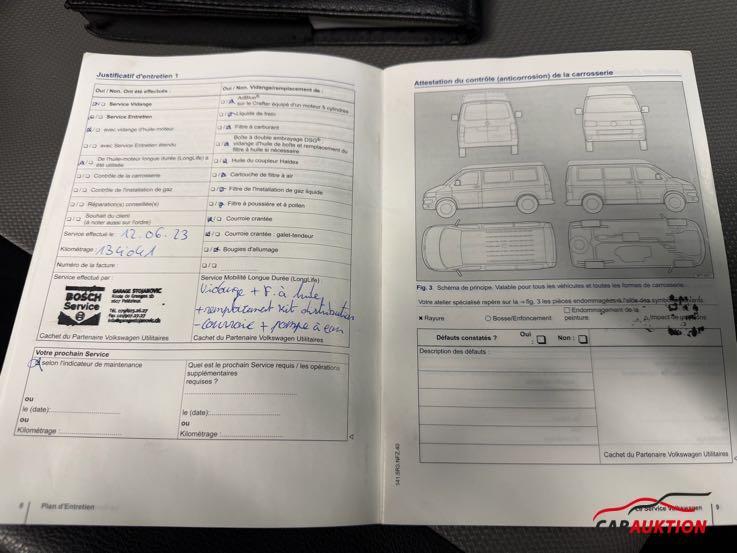 Justificatif d'entretien 1
Oui / Non. Ont été effectués :
Oui / Non. Vidange/remplacement de :
Service Vidange
AdBlue®
sur le Crafter équipé d'un moteur 5 cylindres
Service Entretien
Liquide de frein
avec vidange d'huile-moteur
Filtre à carburant
avec Service Entretien étendu
Boîte à double embrayage DSG®
vidange d'huile de boîte et remplacement du
filtre à huile si nécessaire
De l'huile-moteur longue durée (LongLife) a
été utilisée
Huile du coupleur Haldex
Contrôle de la carrosserie
Cartouche de filtre à air
Contrôle de l'installation de gaz
Filtre de l'installation de gaz liquide
Réparation(s) conseillée(s)
Filtre à poussière et à pollen
Souhait du client
(à noter aussi sur l'ordre)
Courroie crantée
Service effectué le: 12.06.23
Courroie crantée : galet-tendeur
Kilométrage: 134041
Bougies d'allumage
Numéro de la facture :
Service effectué par :
Service Mobilité Longue Durée (LongLife)
BOSCH
Service
GARAGE STOJANOVIC
Vidange + F. à huile
+ remplacement kit distribution
- courroie + pompe à eau
Cachet du Partenaire Volkswagen Utilitaires
Cachet du Partenaire Volkswagen Utilitaires
Votre prochain Service
selon l'indicateur de maintenance
Quel est le prochain Service requis / les opérations
supplémentaires
requises ?
ou
le (date):
le (date):
ou
ou
Kilométrage :
Kilométrage :
8 Plan d'Entretien
Attestation du contrôle (anticorrosion) de la carrosserie
Fig. 3 Schéma de principe. Valable pour tous les véhicules et toutes les formes de carrosserie.
Votre atelier spécialisé repère sur la → fig. 3 les pièces endommagées à l'aide des symboles
× Rayure
Bosse/Enfoncement
Endommagement de la
peinture
Impact de
Défauts constatés ?
Oui :
Non :
Description des défauts :
Cachet du Partenaire Volkswagen Utilitaires
141.5R3.NFZ.40
Le Service Volkswagen 9
CARAUKTION